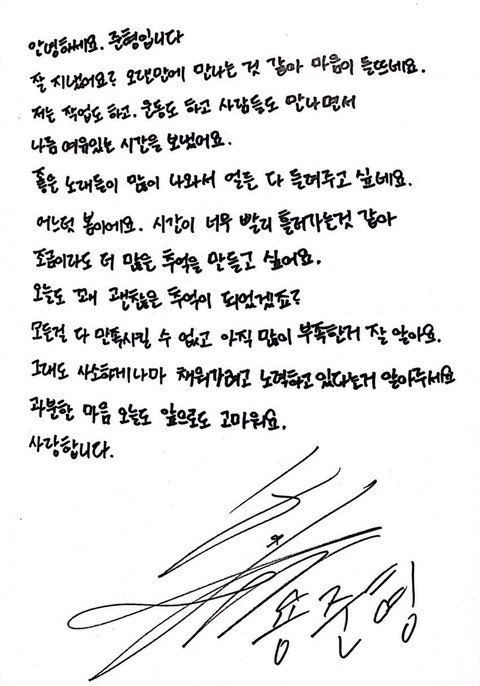 안녕하세요. 준형입니다
잘 지냈어요? 오랜만에 만나는 것 같아 마음이 들뜨네요.
저는 작업도 하고. 운동도 하고 사람들도 만나면서
나름 여유있는 시간을 보냈어요.
좋은 노래들이 많이 나와서 얼른 다 들려주고 싶네요.
어느덧 봄이에요. 시간이 너무 빨리 흘러가는것 같아
조금이라도 더 많은 추억을 만들고 싶어요.
오늘도 꽤 괜찮은 추억이 되었겠죠?
모든걸 다 만족시킬 수 없고 아직 많이 부족한거 잘 알아요.
그래도 사소하게나마 채워가려고 노력하고 있다는거 알아주세요
과분한 마음 오늘도 앞으로도 고마워요.
사랑합니다.
용준형